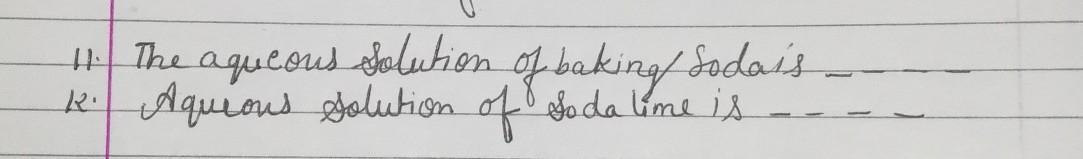 11. The aqueous solution of baking soda is ----
12. Aqueous solution of soda lime is ----